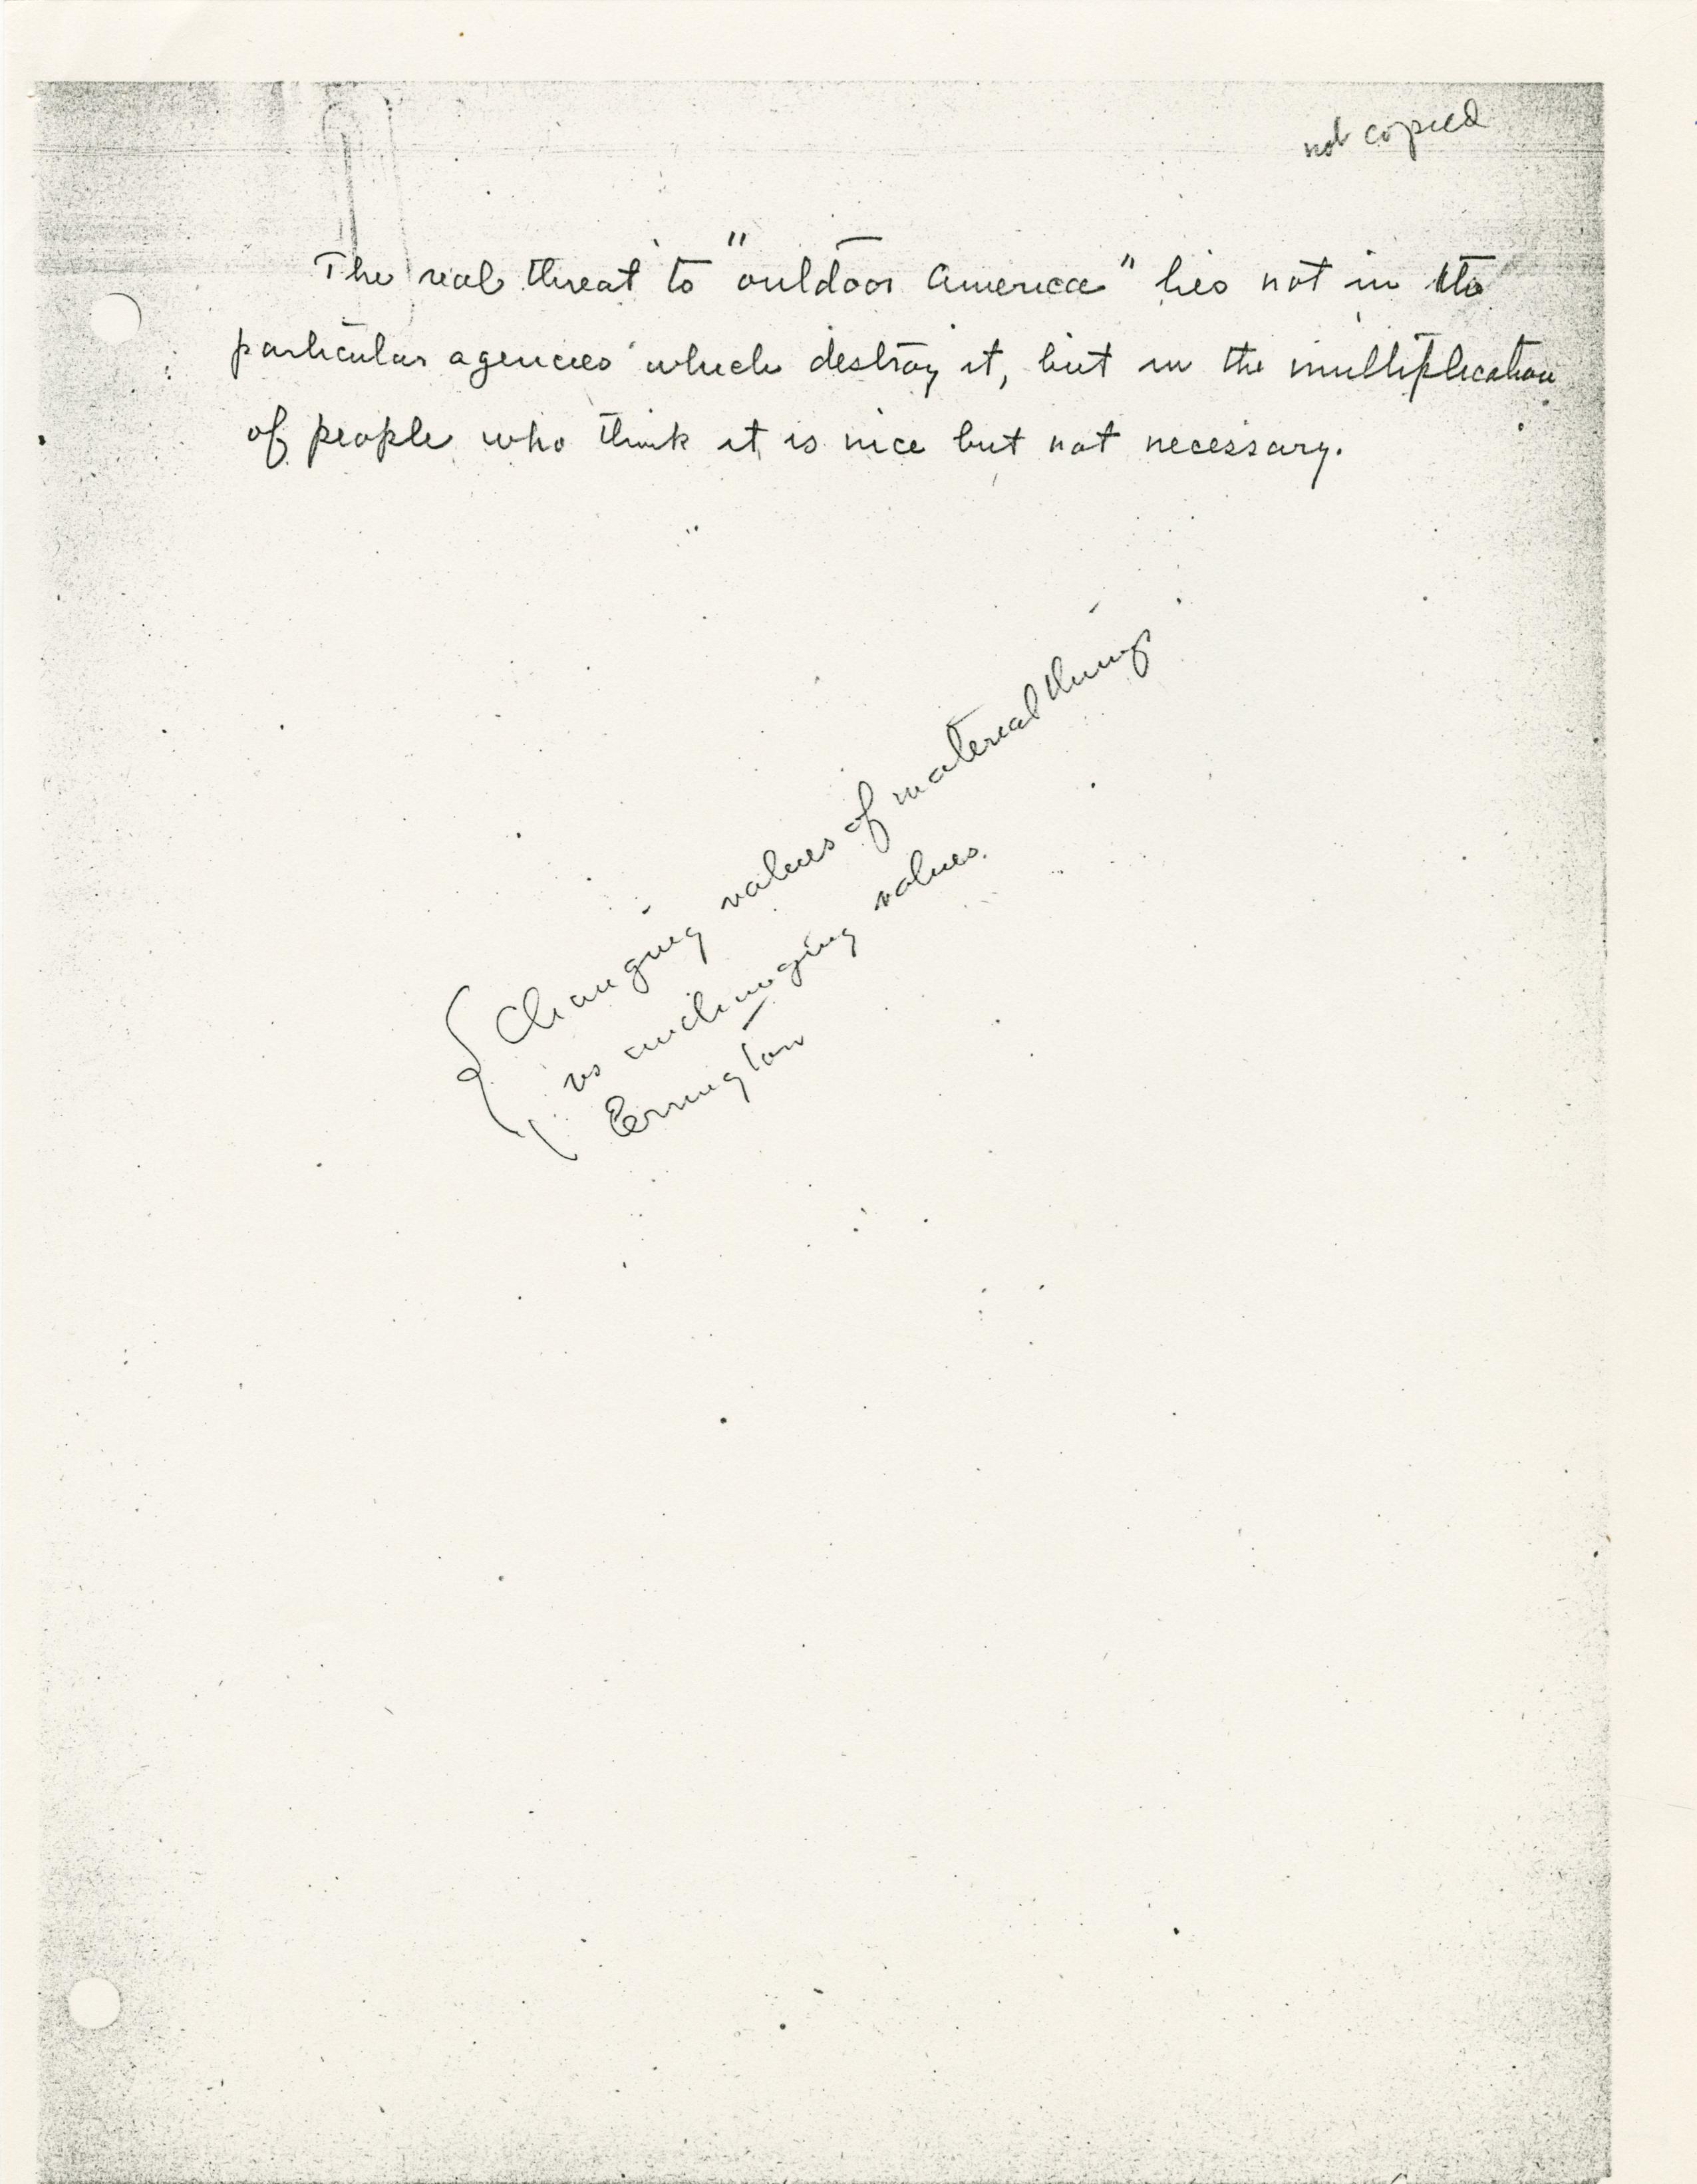 not copied
The real threat to "outdoor America" lies not in the
particular agencies which destroy it, but in the multiplication
of people who think it is nice but not necessary.
Changing values of material things
vs unchanging values.
Errington